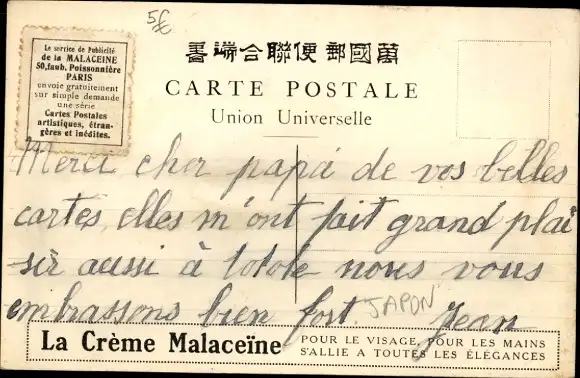 5f
Le service de Publicité
de la MALACEINE
50, faub. Poissonnière
PARIS
envoie gratuitement
sur simple demande
une série
Cartes Postales
artistiques, étran-
gères et inédites.
萬國郵便聯合端書
CARTE POSTALE
Union Universelle
Merci cher papa de vos belles
cartes, elles m'ont fait grand plai
sir aussi à totote nous vous
embrassons bien fort. Jean
JAPON
La Crème Malaceïne
POUR LE VISAGE, POUR LES MAINS
S'ALLIE A TOUTES LES ÉLÉGANCES